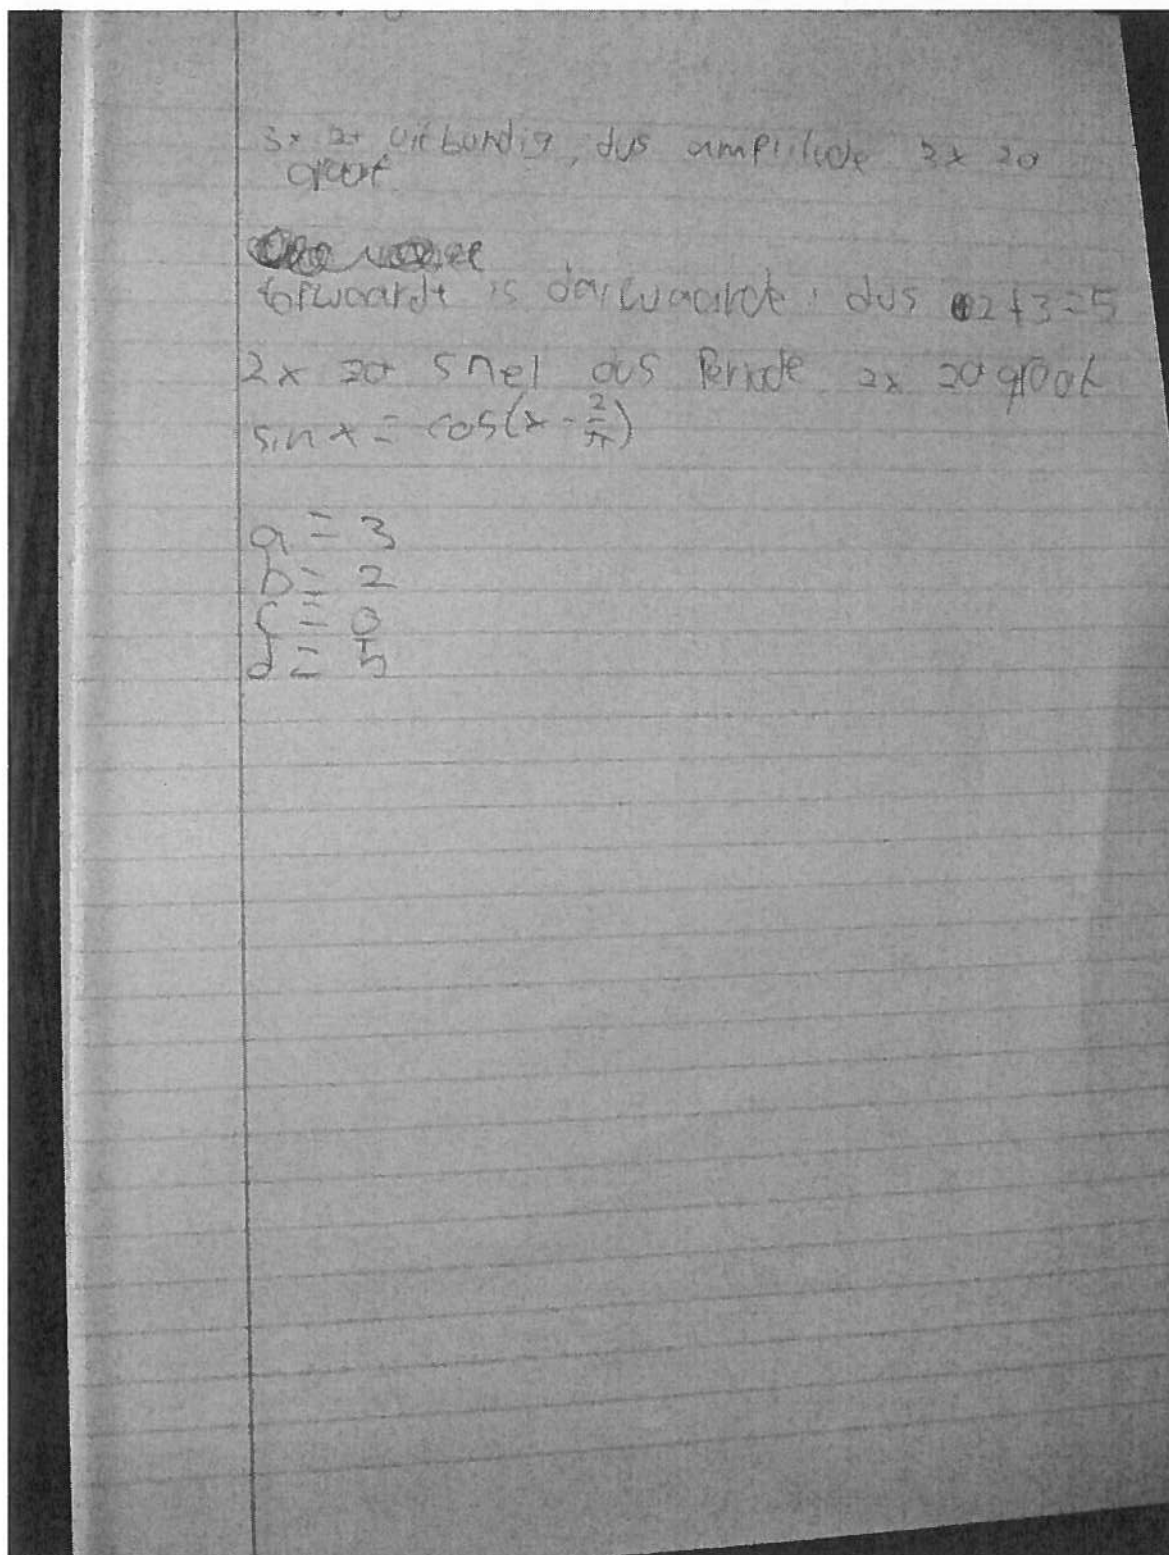 3x zo uitbundig, dus amplitude 3x zo
groot
topwaarde is dalwaarde, dus 2+3=5
2x zo snel dus Periode 2x zo groot
sin x = cos(x - 2/π)
a = 3
b = 2
c = 0
d = 5